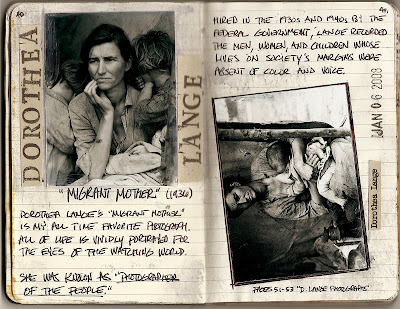 40
DOROTHEA
LANGE
"MIGRANT MOTHER" (1936)
DOROTHEA LANGE'S "MIGRANT MOTHER"
IS MY ALL TIME FAVORITE PHOTOGRAPH.
ALL OF LIFE IS VIVIDLY PORTRAYED FOR
THE EYES OF THE WATCHING WORLD.
SHE WAS KNOWN AS "PHOTOGRAPHER
OF THE PEOPLE."
HIRED IN THE 1930S AND 1940S BY THE
FEDERAL GOVERNMENT, LANGE RECORDED
THE MEN, WOMEN, AND CHILDREN WHOSE
LIVES ON SOCIETY'S MARGINS WERE
ABSENT OF COLOR AND VOICE.
JAN 06 2009
Dorothea Lange
PAGES 51-53 "D. LANGE PHOTOGRAPHS"